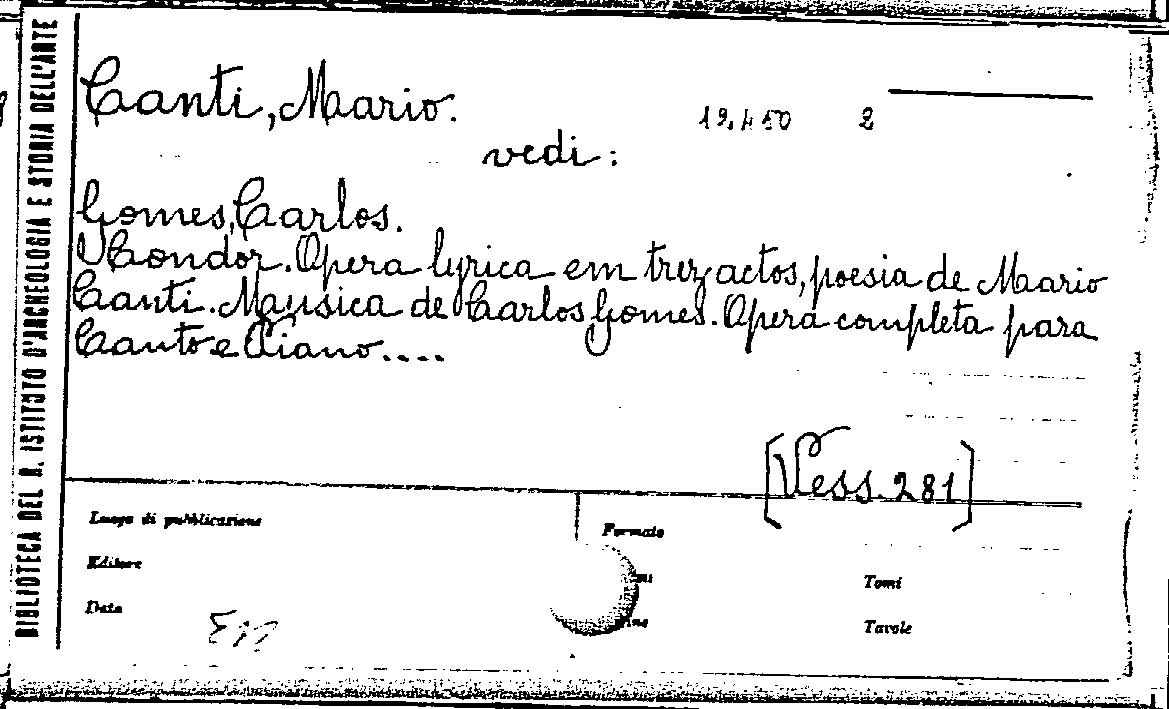 BIBLIOTECA DEL R. ISTITUTO D'ARCHEOLOGIA E STORIA DELL'ARTE
Canti, Mario.
2
vedi:
Gomes, Carlos.
Condor. Opera lyrica em trez actos, poesia de Mario
Canti. Mausica de Carlos Gomes. Opera completa para
Canto e Piano....
[Vess. 281]
Luogo di pubblicazione
Formato
Editore
Tomi
Data
Tavole